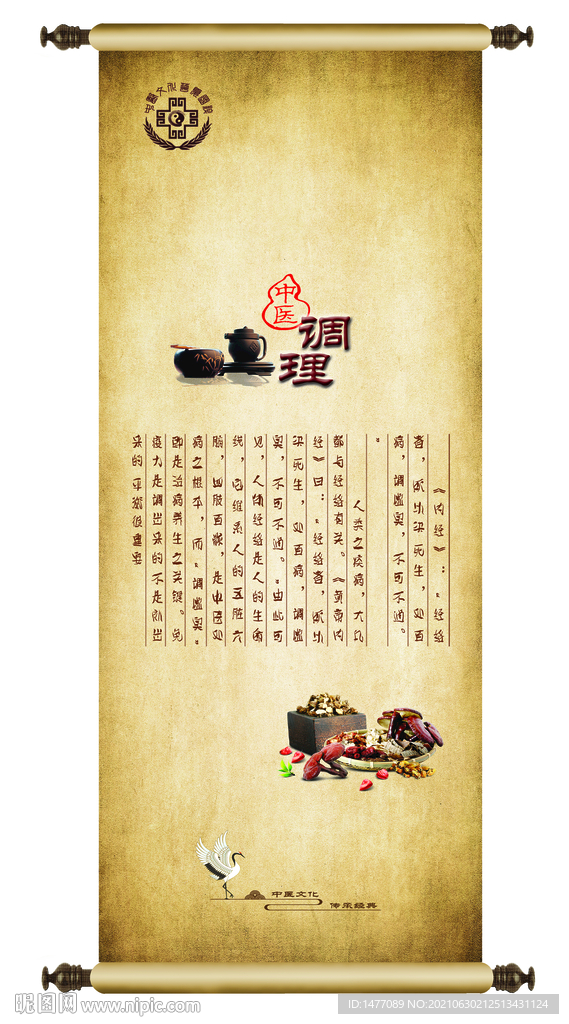 中医
调
理
《内经》：“经络
者，所以决死生，处百
病，调虚实，不可不通。
”
人类之疾病，大凡
都与经络有关。《黄帝内
经》曰：“经络者，所以
决死生，处百病，调虚
实，不可不通。”由此可
见，人体经络是人的生命
线，它维系人的五脏六
腑，四肢百骸，是中医处
病之根本，而“调虚实”
即是治病养生之关键。免
疫力是调出来的不是补出
来的 平衡很重要
中医文化
传承经典
昵图网 www.nipic.com
ID:1477089 NO:20210630212513431124